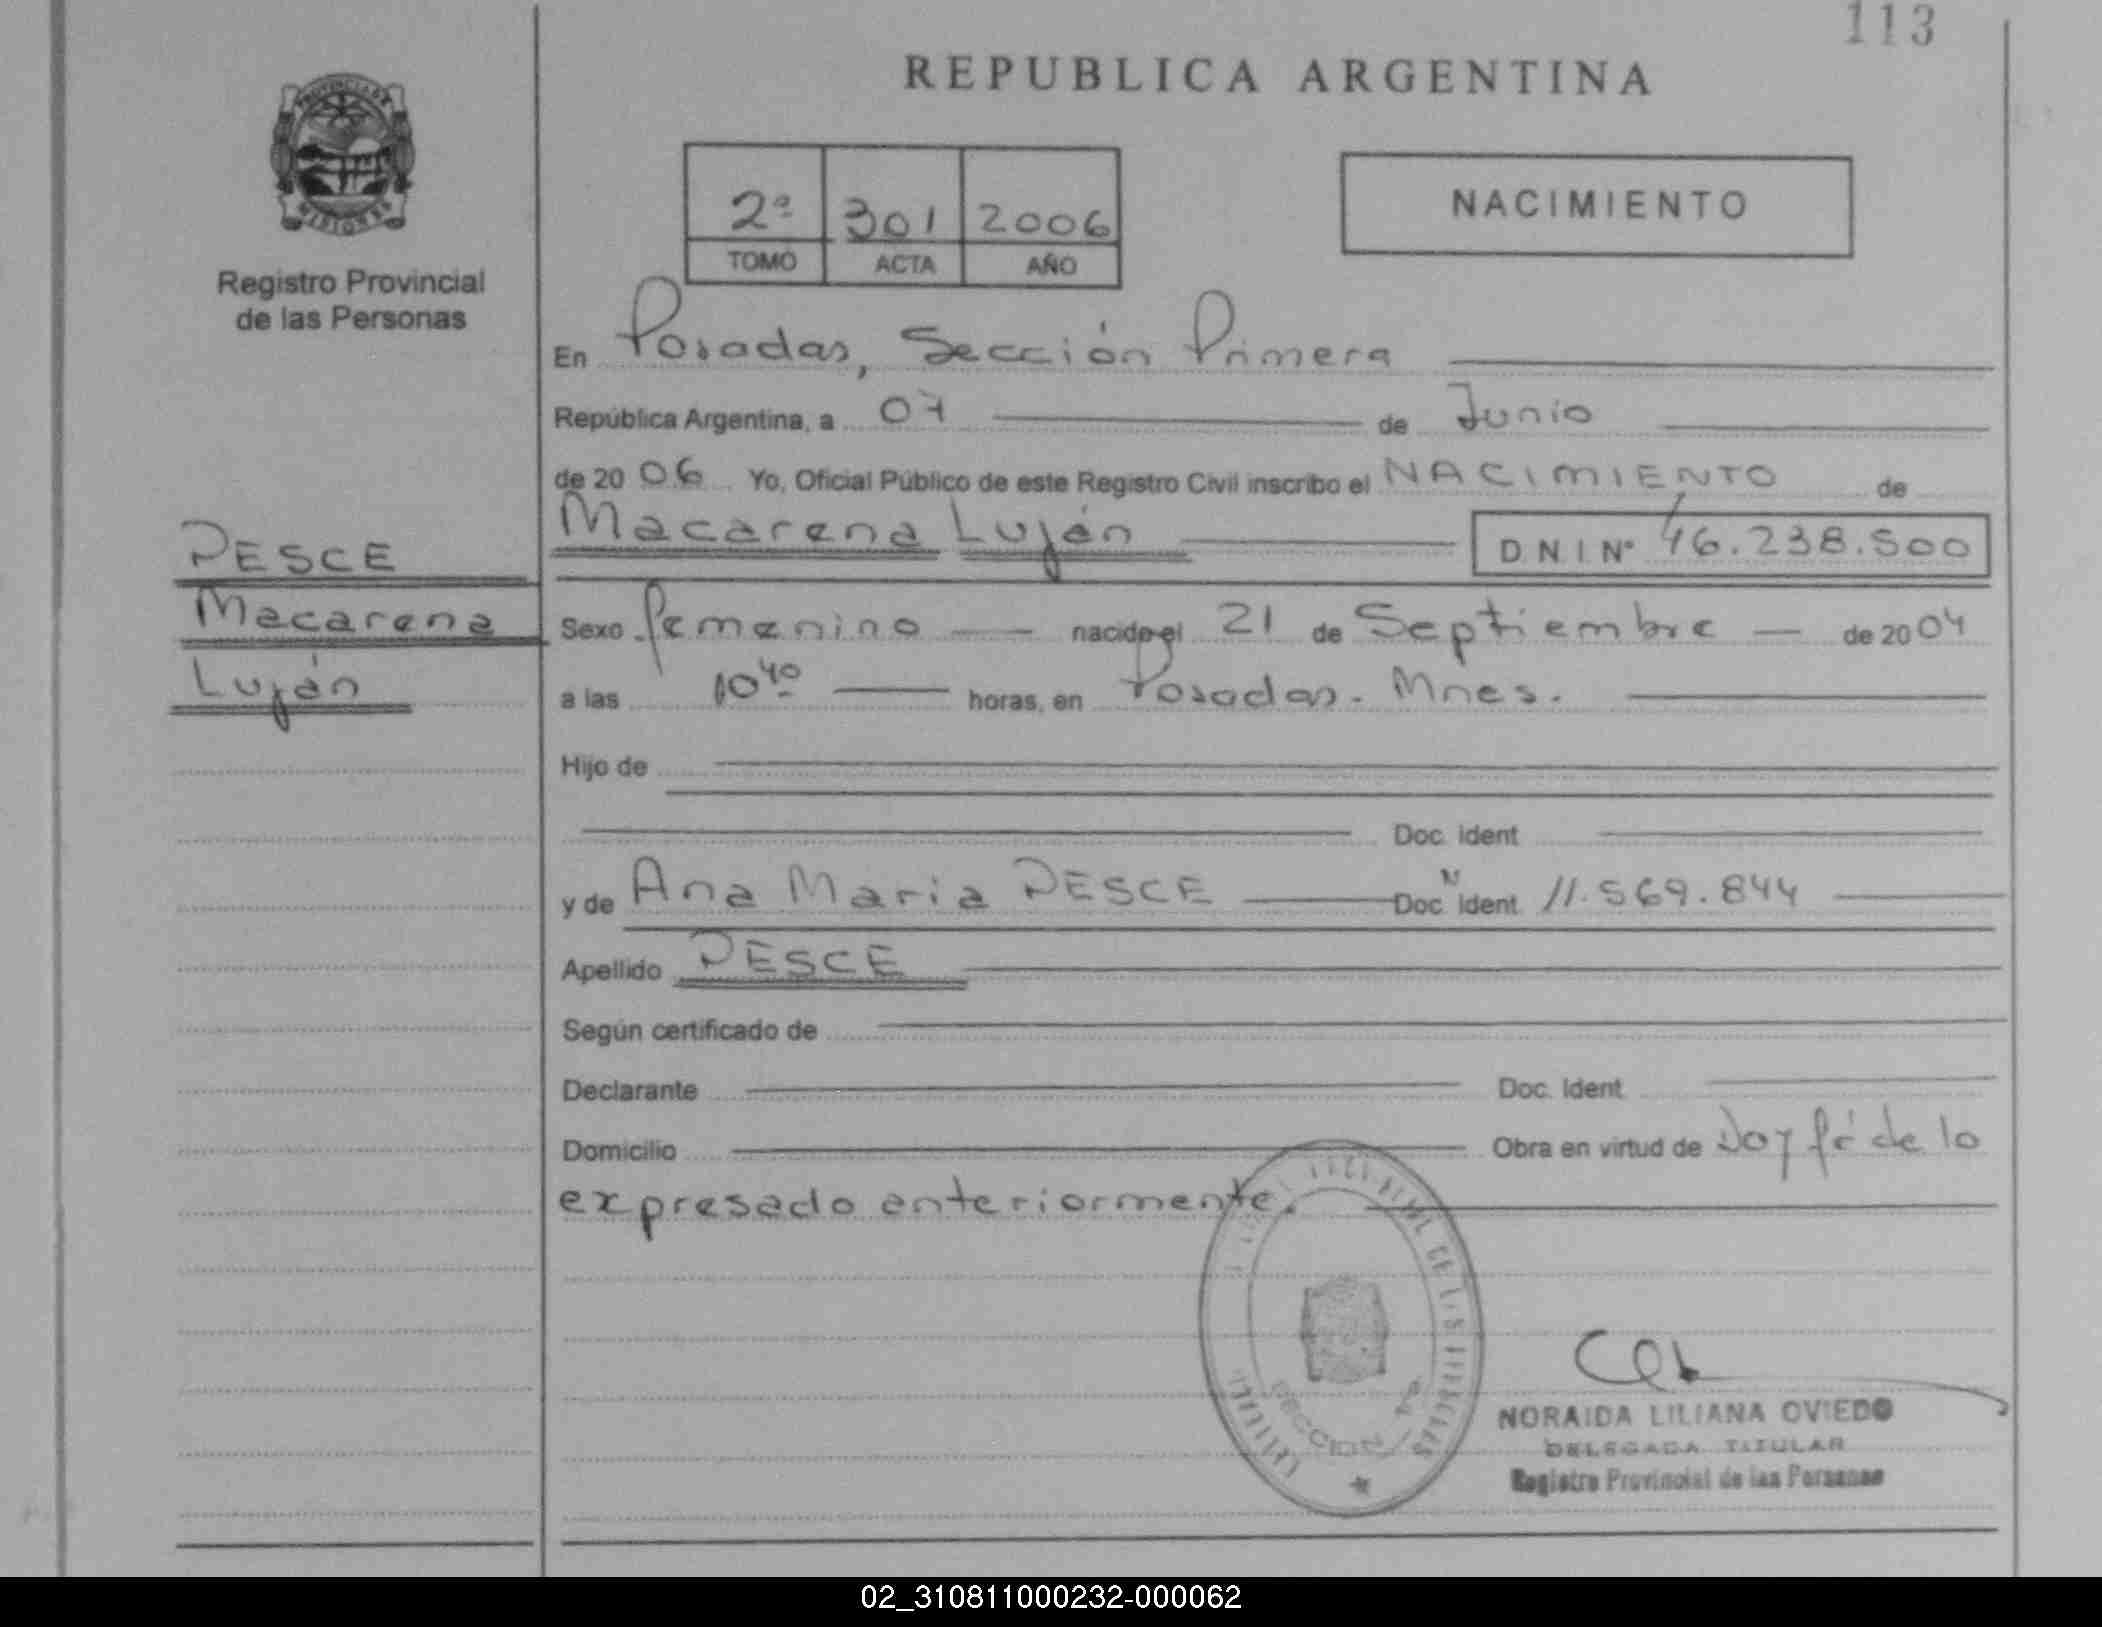 113
REPUBLICA ARGENTINA
PROVINCIA DE
MISIONES
Registro Provincial
de las Personas
2º 301 2006
TOMO ACTA AÑO
NACIMIENTO
En Posadas, Sección Primera
República Argentina, a 07 de Junio
de 20 06 Yo, Oficial Público de este Registro Civil inscribo el NACIMIENTO de
Macarena Luján D.N.I. Nº 46.238.500
PESCE
Macarena
Luján
Sexo femenino nacido el 21 de Septiembre de 20 04
a las 10 40 horas, en Posadas. Mnes.
Hijo de
Doc. Ident
y de Ana Maria PESCE Doc. Ident. N 11.569.844
Apellido PESCE
Según certificado de
Declarante Doc. Ident.
Domicilio Obra en virtud de Doy fé de lo
expresado anteriormente.
SECCION
NORAIDA LILIANA OVIEDO
DELEGADA TITULAR
Registro Provincial de las Personas
02_310811000232-000062